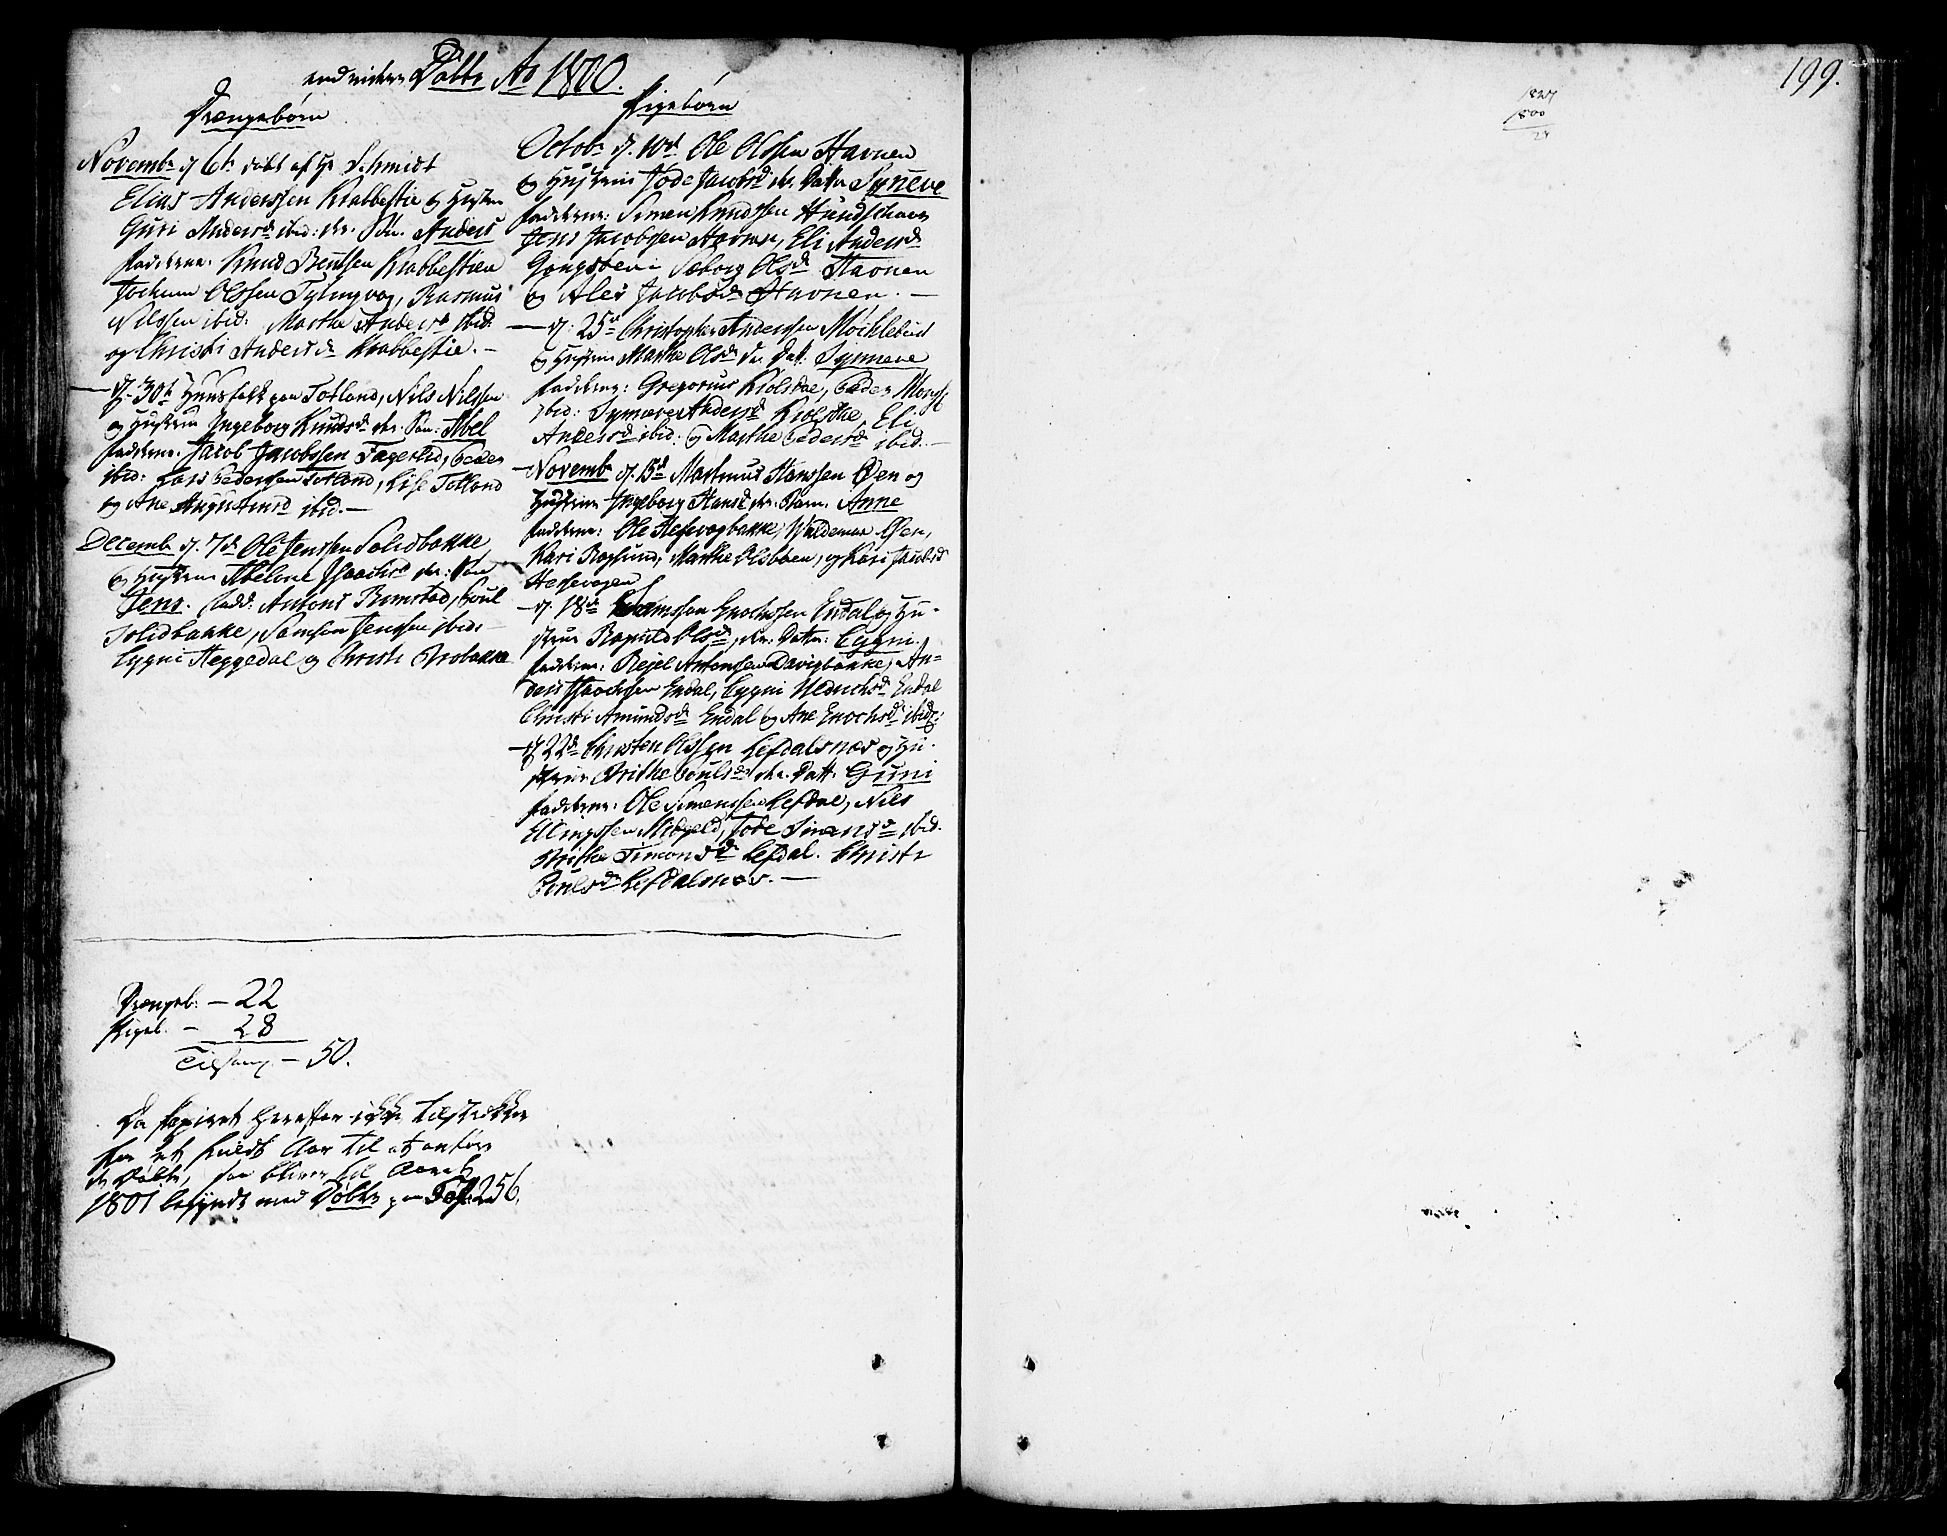 endvidere Døbte Ao 1800.
Drængebørn
Novembr d. 6t døbt af Hr Schmidt
Elias Anderssen Krabbestie og Hustru
Guri Andersd ibid: der. Søn. Anders
fadderne. Knud Bentsen Krabbestien
Jochum Olssen Tytingvog, Rasmus
Nilssen ibid: Marthe Andersd ibid:
og Christi Andersd Krabbestie. -
- d. 30t Huusfolk paa Totland, Nils Nilssen
og Hustrue Ingeborg Knudsd der. Søn: Abel
fadderne. Jacob Jacobssen Fagerlid, Peder
ibid: Lars Pederssen Totland, Lise Totland
og Ane Augustinsd ibid. -
Decembr d. 7de Ole Jenssen Solidbakke
og Hustrue Abelone Isaachsd der: Søn
Jens. fadd: Antoni Rimstad, Poul
Solidbakke, Samson Jenssen ibid:
Sygni Heggedal og Christi Brobakke
Pigebørn
Octobr d. 10d Ole Olssen Havnen
og Hustrue Jøde Jacobsd der. Datter Syneve
fadderne: Simen Knudssen Hundshavn
Jens Jacobssen Havnen, Eli Andersd
Gangsteni Seborg Olsd Havnen
og Ales Jacobsd Havnen. -
- d. 25de Christopher Anderssen Møcklebust
og Hustrue Marthe Olsd der Datt. Synneve
fadderne: Gregorius Kiolsdal, Peder
ibid: Synneve Andersd Kiolsdal, Eli
Andersd ibid: og Marthe Pedersd ibid. -
- Novembr d. 15d Mortmus Hanssen Øen og
Hustrue Ingeborg Hansd der. Barn. Anne
fadderne: Ole Hessevogbakke, Waldemar Øen,
Kari Raglund, Marthe Olsbøen, og Kari Jacobsd
Hessevogen
- d. 18de Samssen Enochssen Endal og Hu-
strue Ragnild Olsd, der. Datter: Sygni.
fadderne: Rejel Antonssen Davigbakke, An-
ders Isaachssen Endal, Sygni Hendrichsd Endal
Christi Amundsd Endal og Ane Enochsd ibid:
- d. 22de Christen Olssen Lefdalsnæs og Hu-
strue Brithe Poulsd der. Datt. Guni
fadderne: Ole Simenssen Lefdal, Nils
Ellingssen Midgeld, Jøde Simensd ibid.
Brithe Simonsd Lefdal. Christi
Poulsd Lefdalsnæs. -
Drængeb: - 22
Pigeb. - 28
Tilsam. - 50.
Da Papiret herefter ikke tilstrekker
for et fuldt Aar til at anføre
de Døbte, saa bliver til Aaret
1801 begyndt med Døbte paa Fol. 256.
199.
1827
1800
27